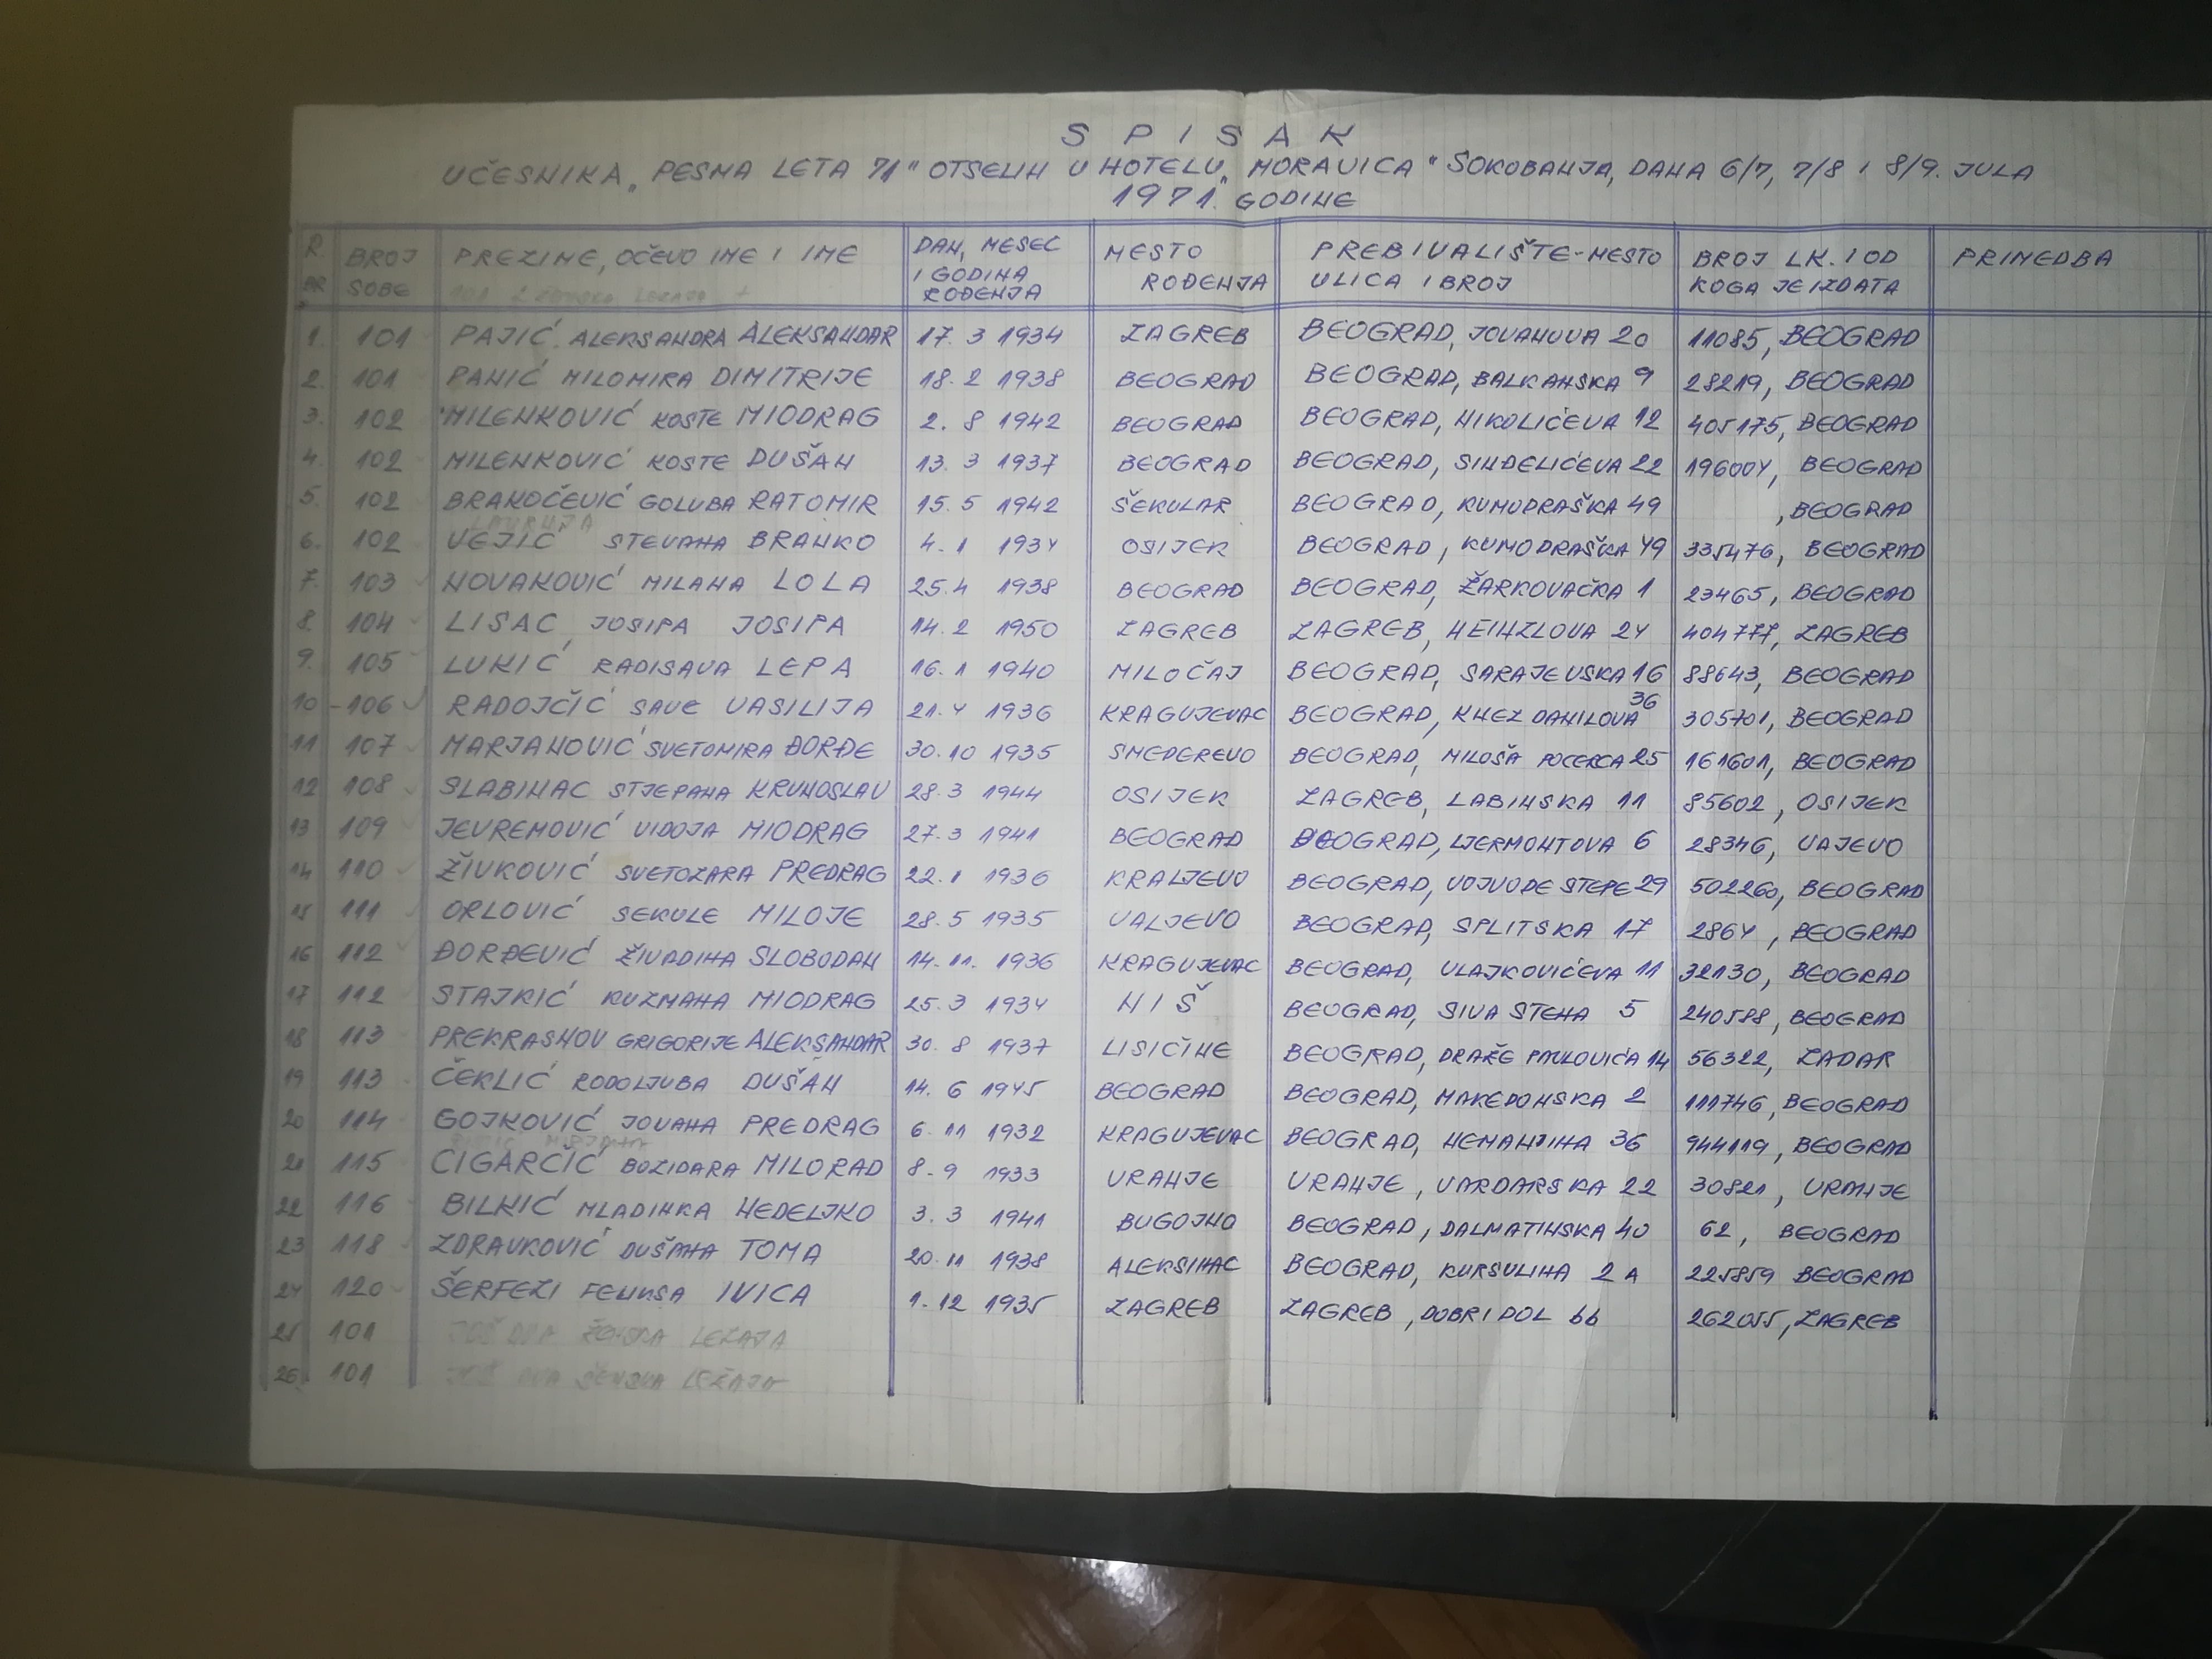 SPISAK
UČESNIKA „PESMA LETA 71" OTSELIH U HOTELU „MORAVICA" SOKOBANJA, DANA 6/7, 7/8 I 8/9. JULA
1971. GODINE
R. BR BROJ SOBE PREZIME, OČEVO IME I IME DAN, MESEC I GODINA ROĐENJA MESTO ROĐENJA PREBIVALIŠTE-MESTO ULICA I BROJ BROJ LK. I OD KOGA JE IZDATA PRIMEDBA
1. 101 PAJIĆ ALEKSANDRA ALEKSANDAR 17. 3 1934 ZAGREB BEOGRAD, JOVANOVA 20 11085, BEOGRAD
2. 101 PANIĆ MILOMIRA DIMITRIJE 18. 2 1938 BEOGRAD BEOGRAD, BALKANSKA 9 28219, BEOGRAD
3. 102 MILENKOVIĆ KOSTE MIODRAG 2. 8 1942 BEOGRAD BEOGRAD, NIKOLIĆEVA 12 405175, BEOGRAD
4. 102 MILENKOVIĆ KOSTE DUŠAN 13. 3 1937 BEOGRAD BEOGRAD, SINĐELIĆEVA 22 196004, BEOGRAD
5. 102 BRAKOČEVIĆ GOLUBA RATOMIR 15. 5 1942 ŠEKULAR BEOGRAD, KUMODRAŠKA 49 , BEOGRAD
6. 102 VEJIĆ STEVANA BRANKO 4. 1 1934 OSIJEK BEOGRAD, KUMODRAŠKA 49 335476, BEOGRAD
7. 103 NOVAKOVIĆ MILANA LOLA 25. 4 1938 BEOGRAD BEOGRAD, ŽARKOVAČKA 1 23465, BEOGRAD
8. 104 LISAC JOSIPA JOSIPA 14. 2 1950 ZAGREB ZAGREB, HEINZLOVA 24 404777, ZAGREB
9. 105 LUKIĆ RADISAVA LEPA 16. 1 1940 MILOČAJ BEOGRAD, SARAJEVSKA 16 88643, BEOGRAD
10 -106 RADOJČIĆ SAVE VASILIJA 21. 4 1936 KRAGUJEVAC BEOGRAD, KNEZ DANILOVA 36 305701, BEOGRAD
11 107 MARJANOVIĆ SVETOMIRA ĐORĐE 30. 10 1935 SMEDEREVO BEOGRAD, MILOŠA POCERCA 25 161601, BEOGRAD
12 108 SLABINAC STJEPANA KRUNOSLAV 28. 3 1944 OSIJEK ZAGREB, LABINSKA 11 85602, OSIJEK
13 109 JEVREMOVIĆ VIDOJA MIODRAG 27. 3 1941 BEOGRAD BEOGRAD, LJERMONTOVA 6 28346, VAJEVO
14 110 ŽIVKOVIĆ SVETOZARA PREDRAG 22. 1 1936 KRALJEVO BEOGRAD, VOJVODE STEPE 29 502260, BEOGRAD
15 111 ORLOVIĆ SEKULE MILOJE 28. 5 1935 VALJEVO BEOGRAD, SPLITSKA 17 2864, BEOGRAD
16 112 ĐORĐEVIĆ ŽIVADINA SLOBODAN 14. 11. 1936 KRAGUJEVAC BEOGRAD, VLAJKOVIĆEVA 11 32130, BEOGRAD
17 112 STAJKIĆ KUZMANA MIODRAG 25. 3 1934 NIŠ BEOGRAD, SIVA STENA 5 240588, BEOGRAD
18 113 PREKRASNOV GRIGORIJE ALEKSANDAR 30. 8 1937 LISIČINE BEOGRAD, DRAŽE PAVLOVIĆA 14 56322, ZADAR
19 113 ČEKLIĆ RODOLJUBA DUŠAN 14. 6 1945 BEOGRAD BEOGRAD, MAKEDONSKA 2 111746, BEOGRAD
20 114 GOJKOVIĆ JOVANA PREDRAG 6. 11 1932 KRAGUJEVAC BEOGRAD, NEMANJINA 36 944119, BEOGRAD
21 115 CIGARČIĆ BOZIDARA MILORAD 8. 9 1933 VRANJE VRANJE, VARDARSKA 22 30821, VRANJE
22 116 BILKIĆ MLADINKA NEDELJKO 3. 3 1941 BUGOJNO BEOGRAD, DALMATINSKA 40 62, BEOGRAD
23 118 ZDRAVKOVIĆ DUŠANA TOMA 20. 11 1938 ALEKSINAC BEOGRAD, KURSULINA 2A 225859 BEOGRAD
24 120 ŠERFEZI FELIKSA IVICA 1. 12 1935 ZAGREB ZAGREB, DOBRI DOL 66 262055, ZAGREB
25 101 JOŠ DVA ŽENSKA LEŽAJA
26 101 JOŠ DVA ŽENSKA LEŽAJA